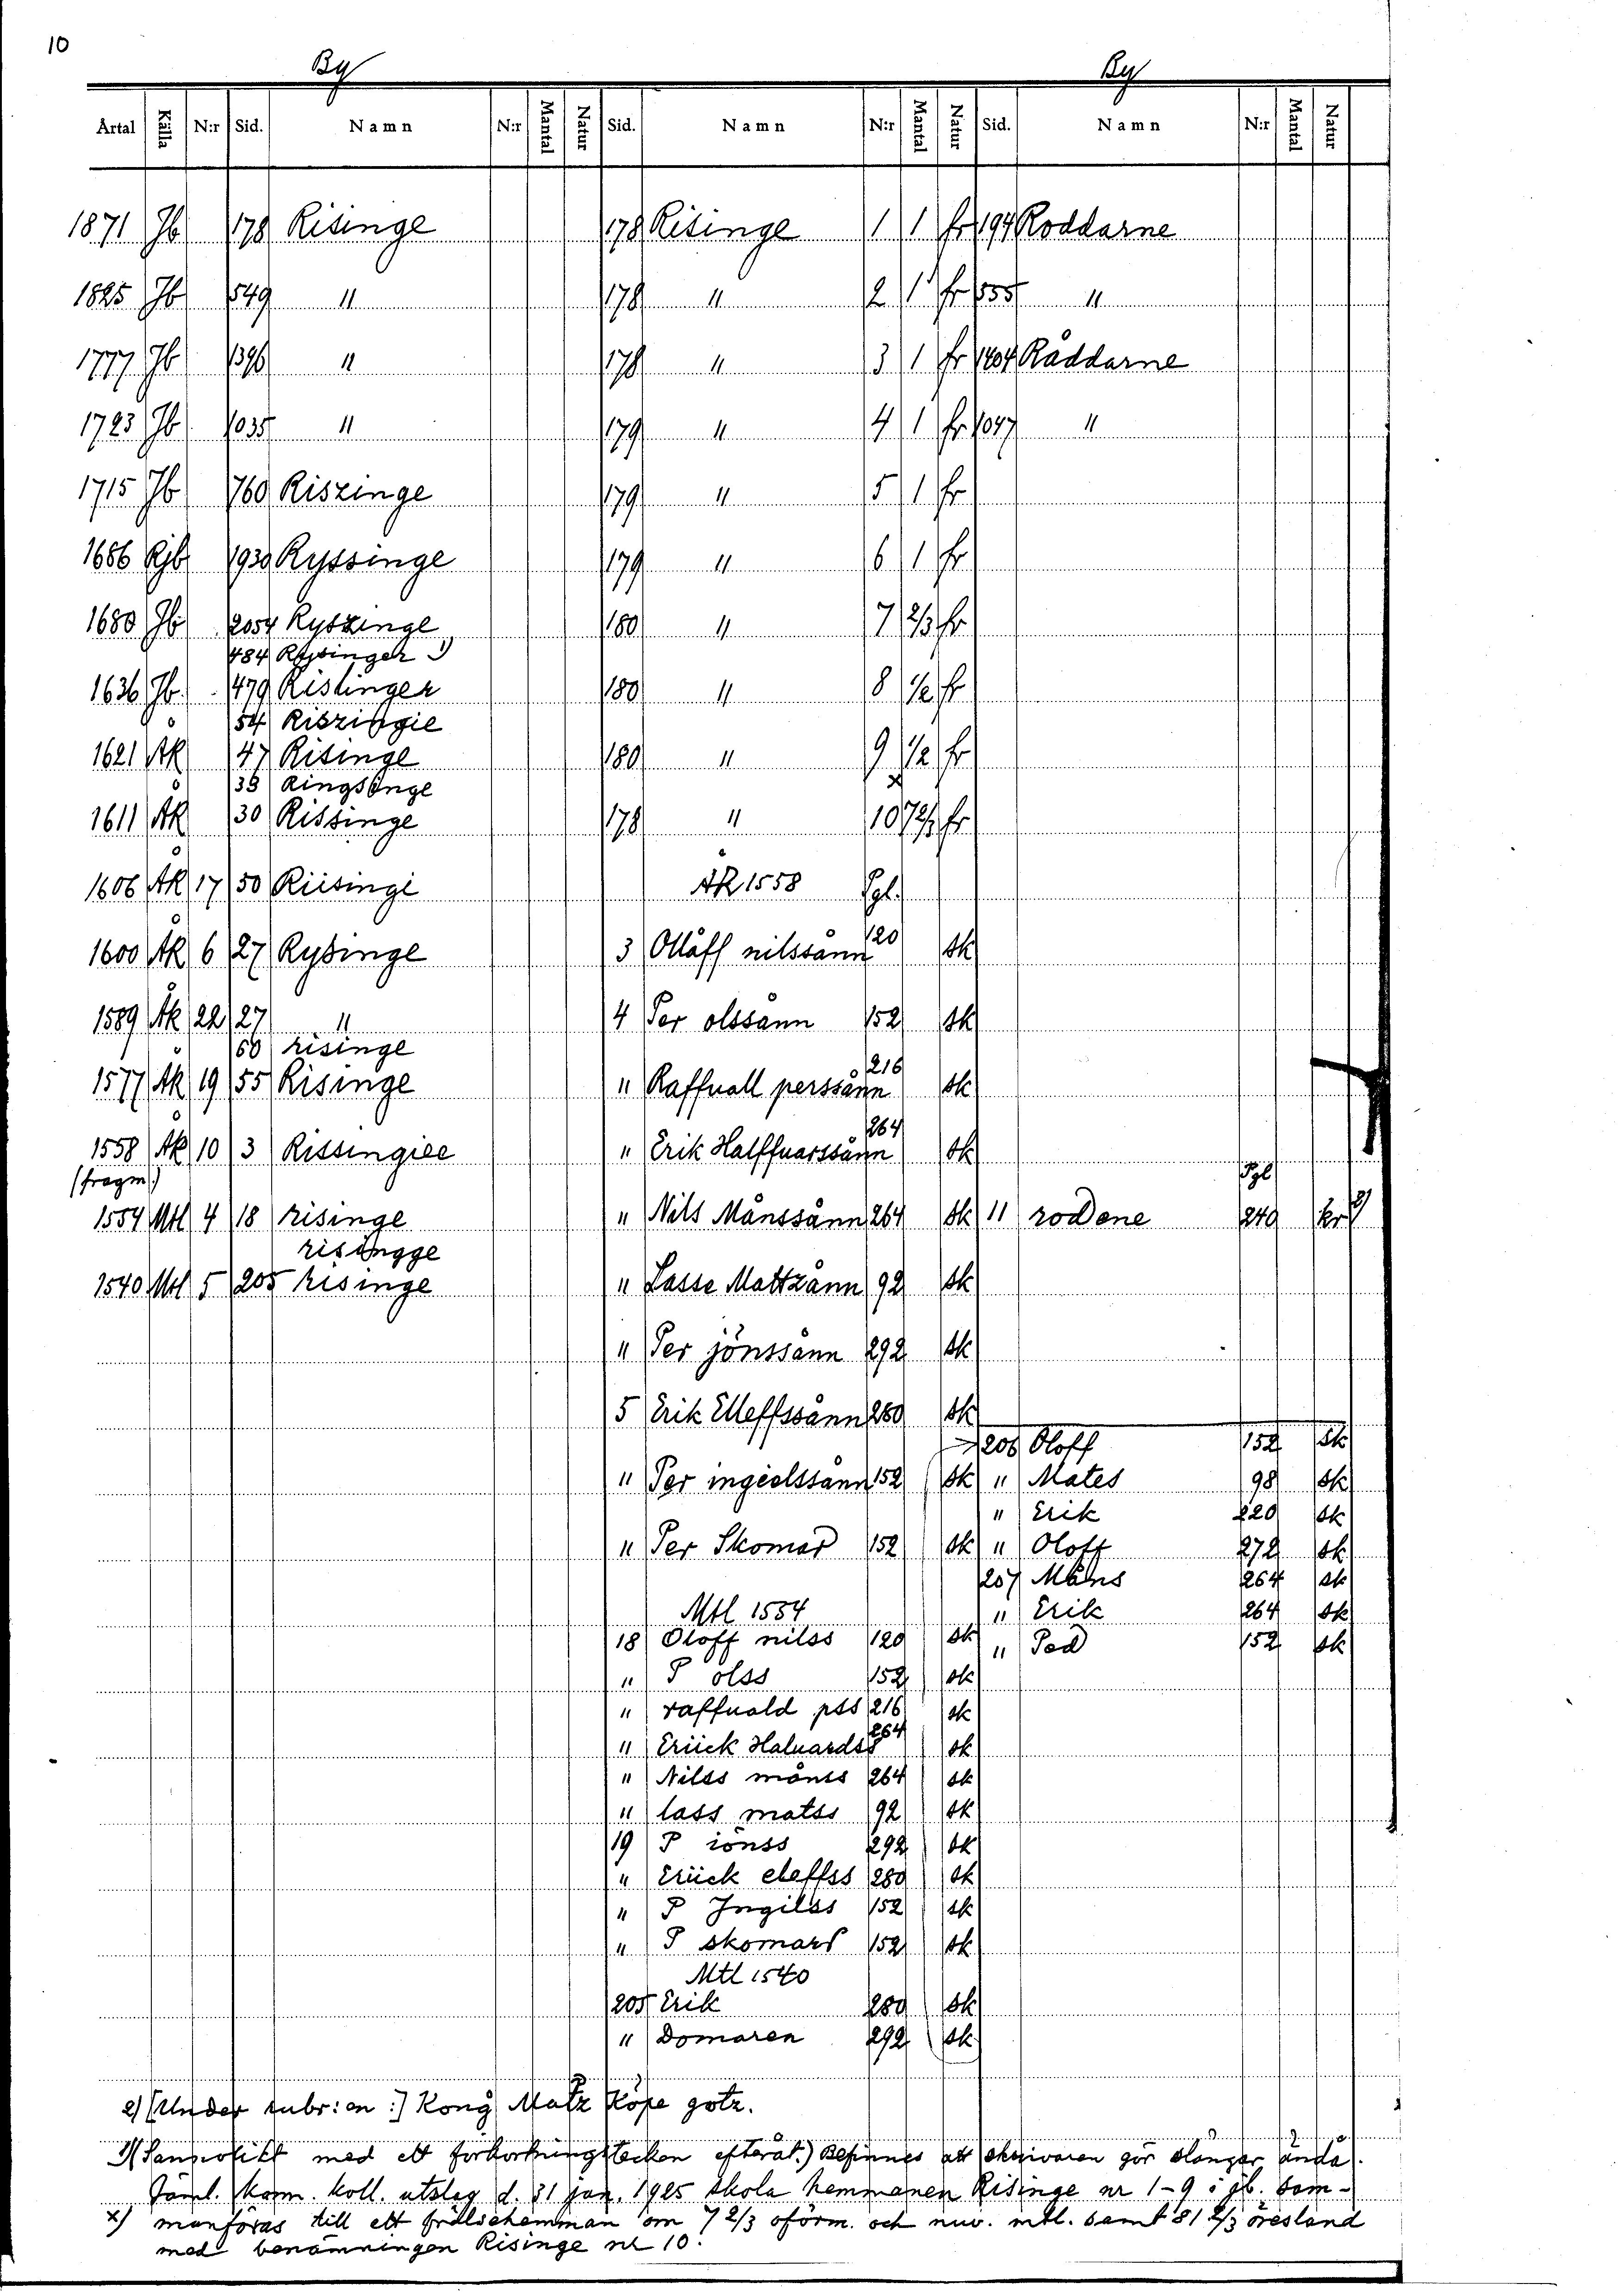 10
By By
Årtal Källa N:r Sid. Namn N:r Mantal Natur Sid. Namn N:r Mantal Natur Sid. Namn N:r Mantal Natur
1871 Jb 178 Risinge 178 Risinge 1 1 fr 194 Roddarne
1825 Jb 549 " 178 " 2 1 fr 555 "
1777 Jb 1396 " 178 " 3 1 fr 1404 Råddarne
1723 Jb 1035 " 179 " 4 1 fr 1047 "
1715 Jb 760 Riszinge 179 " 5 1 fr
1686 Rjb 1930 Ryssinge 179 " 6 1 fr
1680 Jb 2054 Ryszinge 180 " 7 2/3 fr
484 Rysinger 1)
1636 Jb 479 Rislinger 180 " 8 1/2 fr
54 Riszingie
1621 Åk 47 Risinge 180 " 9 1/2 fr
38 Ringsinge x
1611 Åk 30 Rissinge 178 " 10 7 2/3 fr
1606 Åk 17 50 Riisinge ÅK 1558 Pgl.
1600 Åk 6 27 Rysinge 3 Olåff nilssånn 120 sk
1589 Åk 22 27 " 4 Per olssånn 152 sk
60 risinge
1577 Åk 19 55 Risinge " Raffuall perssånn 216 sk
1558 Åk 10 3 Rissingiee " Erik Halffuarssånn 264 sk
(fragm.) Pgl
1554 Mtl 4 18 risinge " Nils Månssånn 264 sk 11 rodene 240 kr 2)
risingge
1540 Mtl 5 205 risinge " Lasse Mattzånn 92 sk
" Per jönssånn 292 sk
5 Erik Elleffssånn 280 sk
206 Oloff 152 sk
" Per ingielssånn 152 sk " Mates 98 sk
" Erik 220 sk
" Per Skomar 152 sk " Oloff 272 sk
207 Måns 264 sk
Mtl 1554 " Erik 264 sk
18 Oloff nilss 120 sk " Ped 152 sk
" P olss 152 sk
" raffuald pss 216 sk
" Eriick Haluardss 264 sk
" Nilss månss 264 sk
" lass matss 92 sk
19 P iönss 292 sk
" Eriick eleffss 280 sk
" P Ingilss 152 sk
" P skomars 152 sk
Mtl 1540
205 Erik 280 sk
" Domaren 292 sk
2) [Under rubr:en :] Kong Matz Köpe gotz.
1) (Sannolikt med ett förkortningstecken efteråt.) Befinnes att skrivaren gör slängar ända.
Jäml. Kam. Koll. utslag d. 31 jan. 1925 skola hemmanen Risinge nr 1-9 i jb. sam-
x) manföras till ett frälsehemman om 7 2/3 oförm. och nuv. mtl. samt 81 2/3 öresland
med benämningen Risinge nr 10.